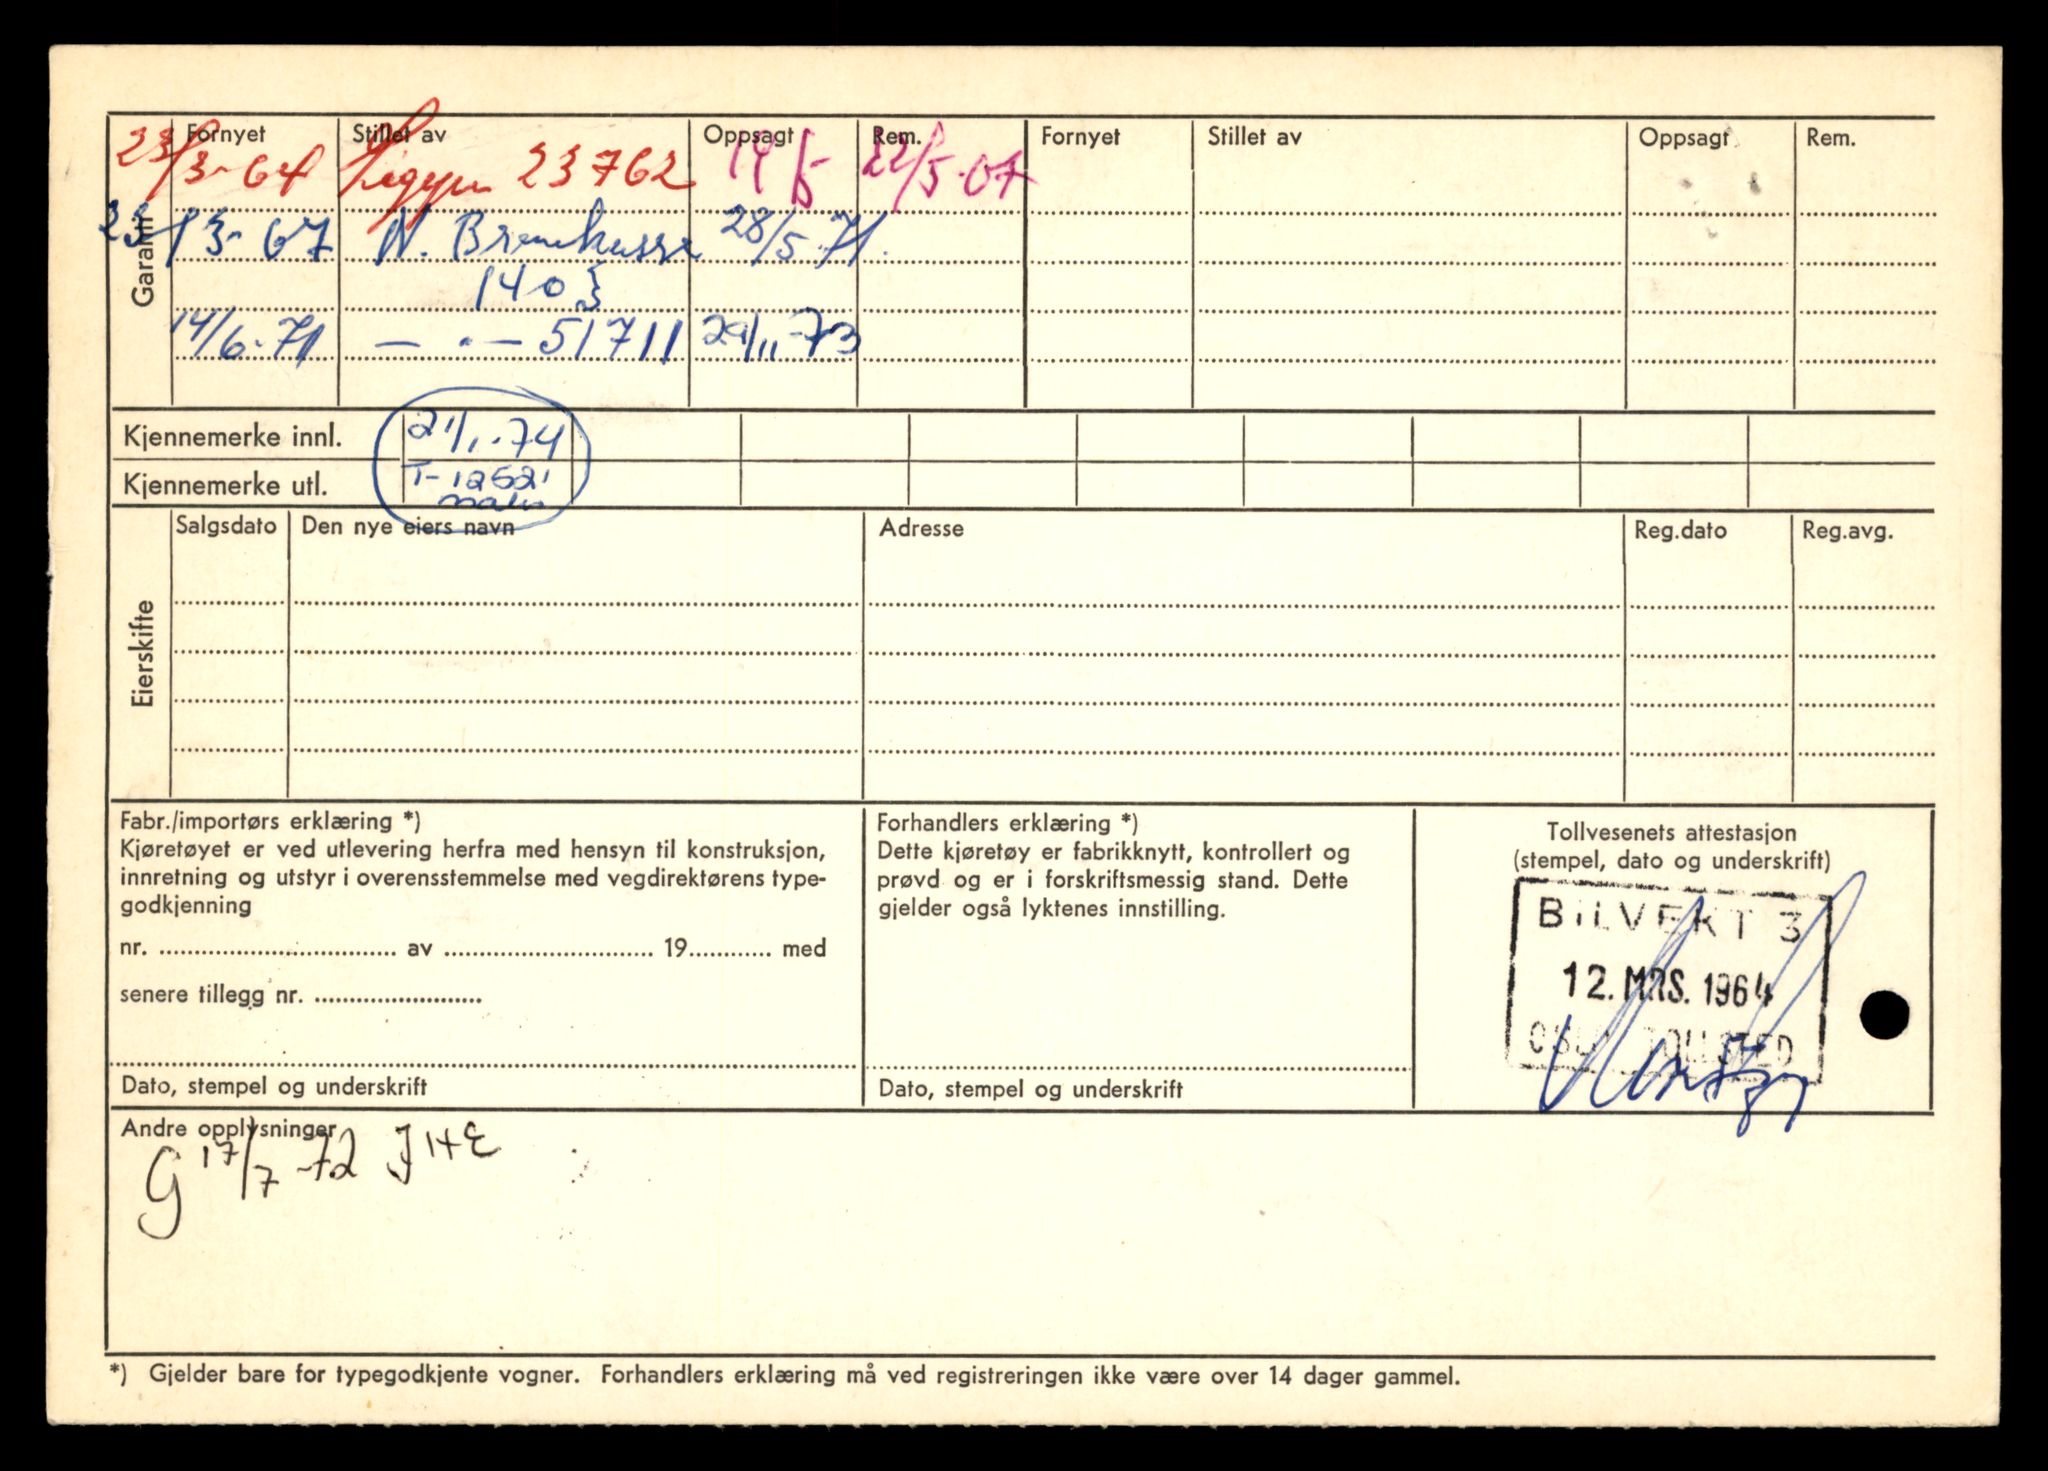 Garanti
Fornyet Stillet av Oppsagt Rem. Fornyet Stillet av Oppsagt Rem.
23/3-64 Sigyn 23762 14/5 22/5-67
/3-67 N. Brannkasse 28/5-71.
140}
14/6-71 — · — 51711 29/11-73
Kjennemerke innl. 21/1-74
Kjennemerke utl. T-12521
Eierskifte
Salgsdato Den nye eiers navn Adresse Reg.dato Reg.avg.
Fabr./importørs erklæring *)
Kjøretøyet er ved utlevering herfra med hensyn til konstruksjon,
innretning og utstyr i overensstemmelse med vegdirektørens type-
godkjenning
nr. .................................. av .............................. 19............ med
senere tillegg nr. ........................
Dato, stempel og underskrift
Forhandlers erklæring *)
Dette kjøretøy er fabrikknytt, kontrollert og
prøvd og er i forskriftsmessig stand. Dette
gjelder også lyktenes innstilling.
Dato, stempel og underskrift
Tollvesenets attestasjon
(stempel, dato og underskrift)
BILVEKT 3
12. MRS. 1964
OSLO TOLLSTED
Andre opplysninger
G 17/7-72 JHE
*) Gjelder bare for typegodkjente vogner. Forhandlers erklæring må ved registreringen ikke være over 14 dager gammel.